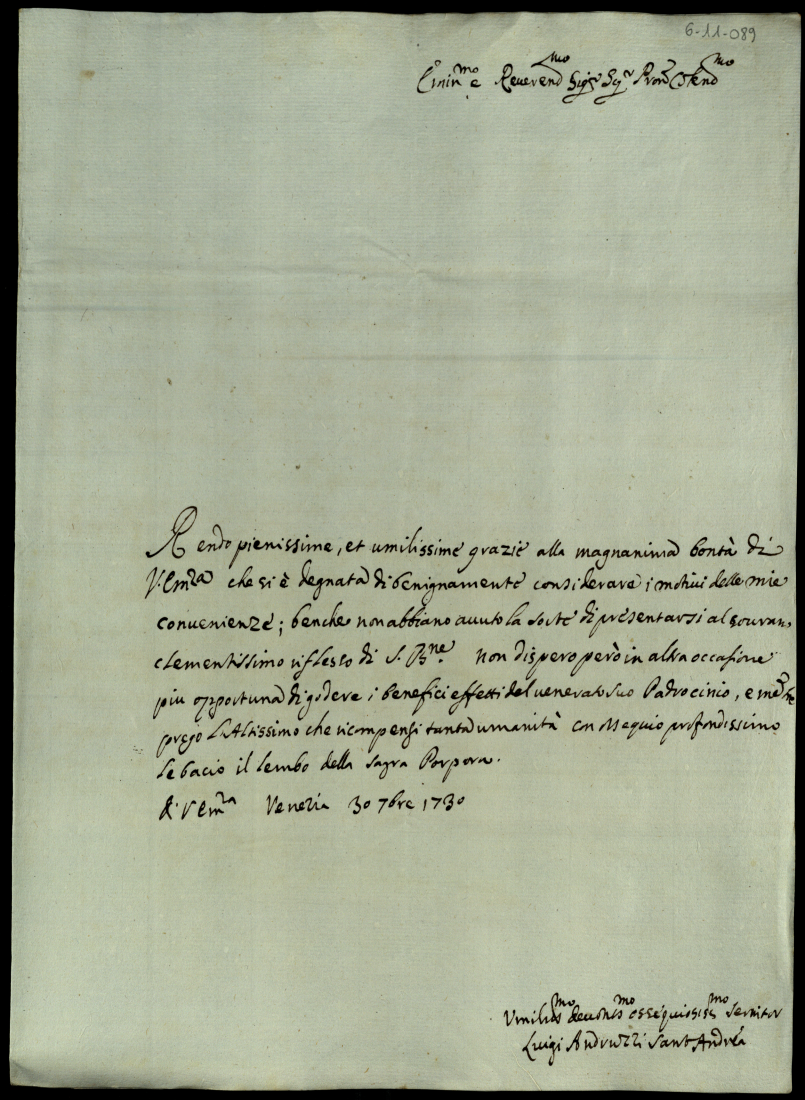 6-11-089
Emin.mo e Reverend.mo Sig.r Sig.r Pron Colend.mo
Rendo pienissime, et umilissime grazie alla magnanima bontà di
V. Em.za che si è degnata di benignamente considerare i motivi delle mie
convenienze; benche non abbiano avuto la sorte di presentarsi al sovran,
clementissimo riflesso di S. B.ne. Non dispero però in altra occasione
più opportuna di godere i benefici effetti del venerato suo Padrocinio, e
prego l'Altissimo che ricompensi tanta umanità con ossequio profondissimo
le bacio il lembo della sagra Porpora.
di V Em.za Venezia 30 7bre 1730
Umiliss.mo devotis.mo ossequiosiss.mo Servitor
Luigi Andruzzi Sant Andrea